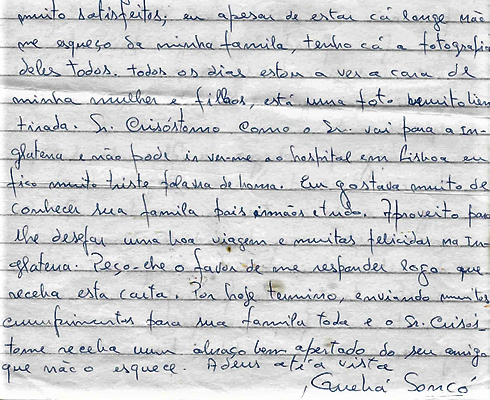 muito satisfeitos; eu apesar de estar cá longe não
me esqueço da minha familia, tenho cá a fotografia
deles todos. todos os dias estou a ver a cara de
minha mulher e filhos, está uma foto
tirada. Sr. Crisóstomo como o Sr. vai para a In-
glaterra e não pode ir ver-me ao hospital em Lisboa eu
fico muito triste palavra de honra. Eu gostava muito de
conhecer sua familia pais irmãos e tudo. Aproveito para
lhe desejar uma boa viagem e muitas felicidas na In-
glaterra. Peço-che o favor de me responder logo que
receba esta carta. Por hoje termino, enviando muitos
cumprimentos para sua familia toda e o Sr. Crisós-
tomo receba um abraço bem apertado do seu amigo
que não o esquece. Adeus até á vista
Sonco